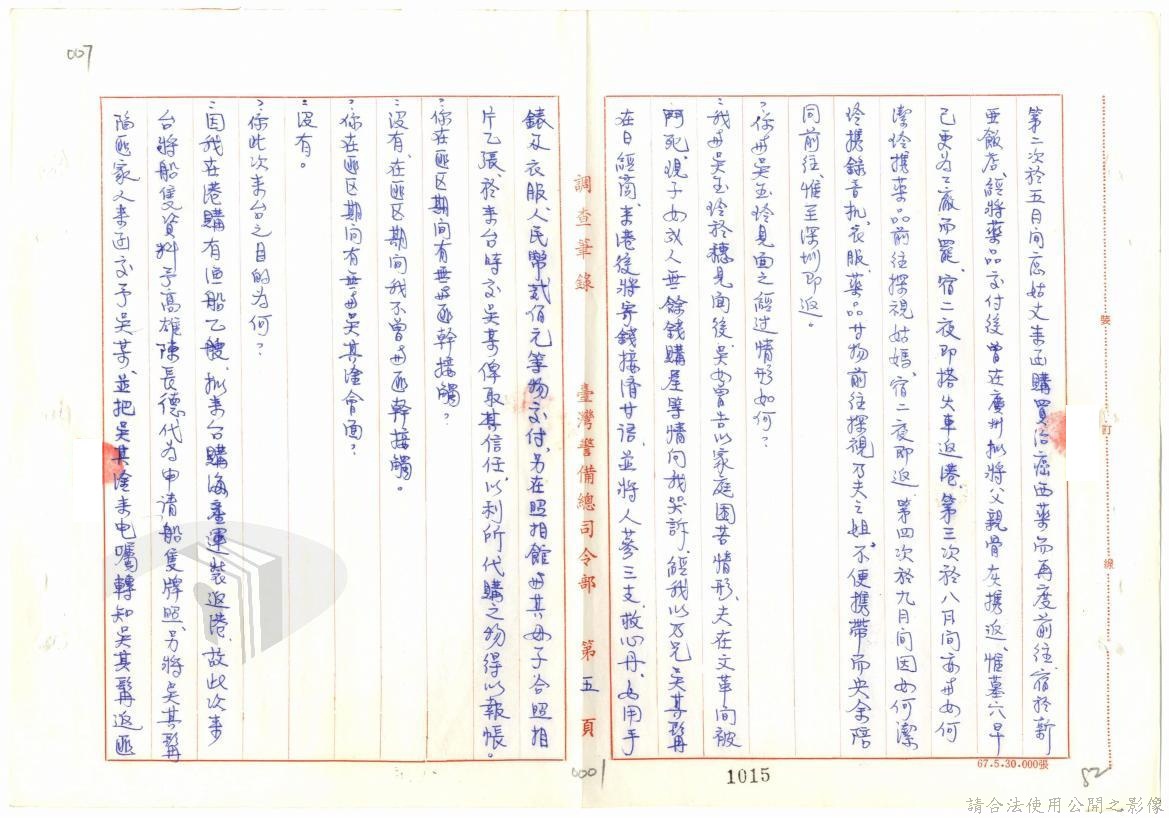 007
第二次於五月間應姑丈来函購買治癌西藥而再度前往，宿於新
亜飯店，經將藥品交付後曾在廣州擬將父親骨灰携返，惟墓穴早
已更為工廠而罷，宿二夜即搭火車返港，第三次於八月間亦与女何
潔玲携藥品前往探視姑媽，宿二夜即返，第四次於九月間因女何潔
玲携錄音机、衣服、藥品廿物前往探視乃夫之姐，不便携帶而央余陪
同前往，惟至深圳即返。
？你与吴玉玲見面之經过情形如何？
：我与吴玉玲於穗見面後，吴女曾告以家庭困苦情形，夫在文革间被
鬥死，現子女弍人無餘錢購屋等情向我哭訴，經我以万兄吴其髯
在日經商，来港後將寄錢接濟廿语，並將人蔘三支，救心丹，女用手
調查筆錄
臺灣警備總司令部
第五頁
裝
訂
線
67.5.30.000張
錶及衣服、人民幣貳佰元等物交付，另在照相館与其母子合照相
片乙張，於来台時交吴某俾取其信任，以利所代購之物得以報帳。
？你在匪区期间有無与匪幹接觸？
：沒有，在匪区期间我不曾与匪幹接觸。
？你在匪区期间有無与吴其淦會面？
：沒有。
？你此次来台之目的為何？
：因我在港購有漁船乙艘，拟来台購海產運裝返港，故此次来
台將船隻資料予高雄陳長德代为申请船隻牌照，另將吴其髯
陷匪家人来函交予吴某，並把吴其淦来电囑轉知吴其髯返匪
0001
1015
82
請合法使用公開之影像